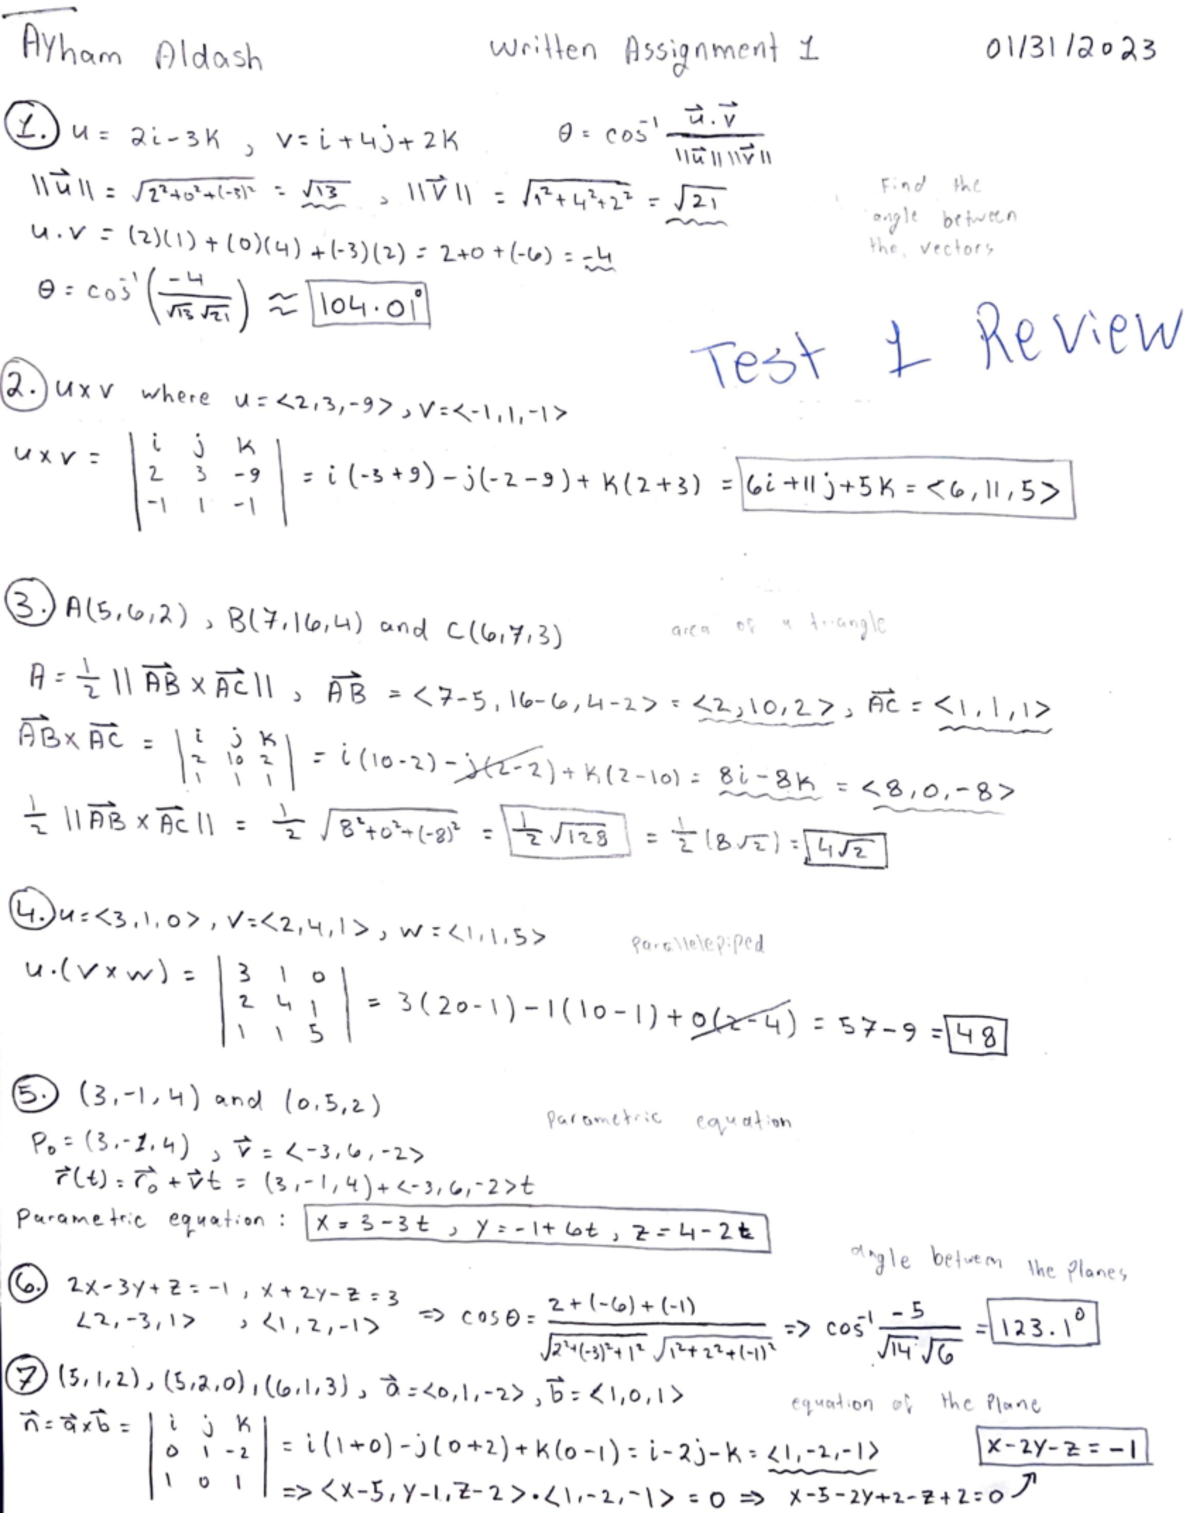 Ayham Aldash Written Assignment 1 01/31/2023
1. u = 2i-3k, v = i+4j+2k θ = cos⁻¹ u⃗.v⃗ / ||u⃗|| ||v⃗||
||u⃗|| = √(2²+0²+(-3)²) = √13, ||v⃗|| = √(1²+4²+2²) = √21
Find the
angle between
the vectors
u.v = (2)(1)+(0)(4)+(-3)(2) = 2+0+(-6) = -4
θ = cos⁻¹(-4/(√13 √21)) ≈ 104.01°
Test 1 Review
2. u×v where u=<2,3,-9>, v=<-1,1,-1>
u×v = | i j k |
| 2 3 -9 |
| -1 1 -1 | = i(-3+9)-j(-2-9)+k(2+3) = 6i+11j+5k = <6,11,5>
3. A(5,6,2), B(7,16,4) and C(6,7,3) area of a triangle
A = 1/2 ||AB⃗ × AC⃗||, AB⃗ = <7-5, 16-6, 4-2> = <2,10,2>, AC⃗ = <1,1,1>
AB⃗ × AC⃗ = | i j k |
| 2 10 2 |
| 1 1 1 | = i(10-2)-j(2-2)+k(2-10) = 8i-8k = <8,0,-8>
1/2 ||AB⃗ × AC⃗|| = 1/2 √(8²+0²+(-8)²) = 1/2 √128 = 1/2 (8√2) = 4√2
4. u=<3,1,0>, v=<2,4,1>, w=<1,1,5> Parallelepiped
u.(v×w) = | 3 1 0 |
| 2 4 1 |
| 1 1 5 | = 3(20-1)-1(10-1)+0(2-4) = 57-9 = 48
5. (3,-1,4) and (0,5,2)
Parametric equation
P₀ = (3,-1,4), v⃗ = <-3,6,-2>
r⃗(t) = r⃗₀ + v⃗t = (3,-1,4)+<-3,6,-2>t
Parametric equation: x = 3-3t, y = -1+6t, z = 4-2t
angle between the planes
6. 2x-3y+z=-1, x+2y-z=3
<2,-3,1>, <1,2,-1> ⇒ cosθ = 2+(-6)+(-1) / √(2²+(-3)²+1²) √(1²+2²+(-1)²) ⇒ cos⁻¹ -5/(√14 √6) = 123.1°
7 (5,1,2), (5,2,0), (6,1,3), a⃗=<0,1,-2>, b⃗=<1,0,1>
equation of the Plane
n⃗=a⃗×b⃗ = | i j k |
| 0 1 -2 |
| 1 0 1 | = i(1+0)-j(0+2)+k(0-1) = i-2j-k = <1,-2,-1> x-2y-z=-1
⇒ <x-5, y-1, z-2>.<1,-2,-1> = 0 ⇒ x-5-2y+2-z+2=0